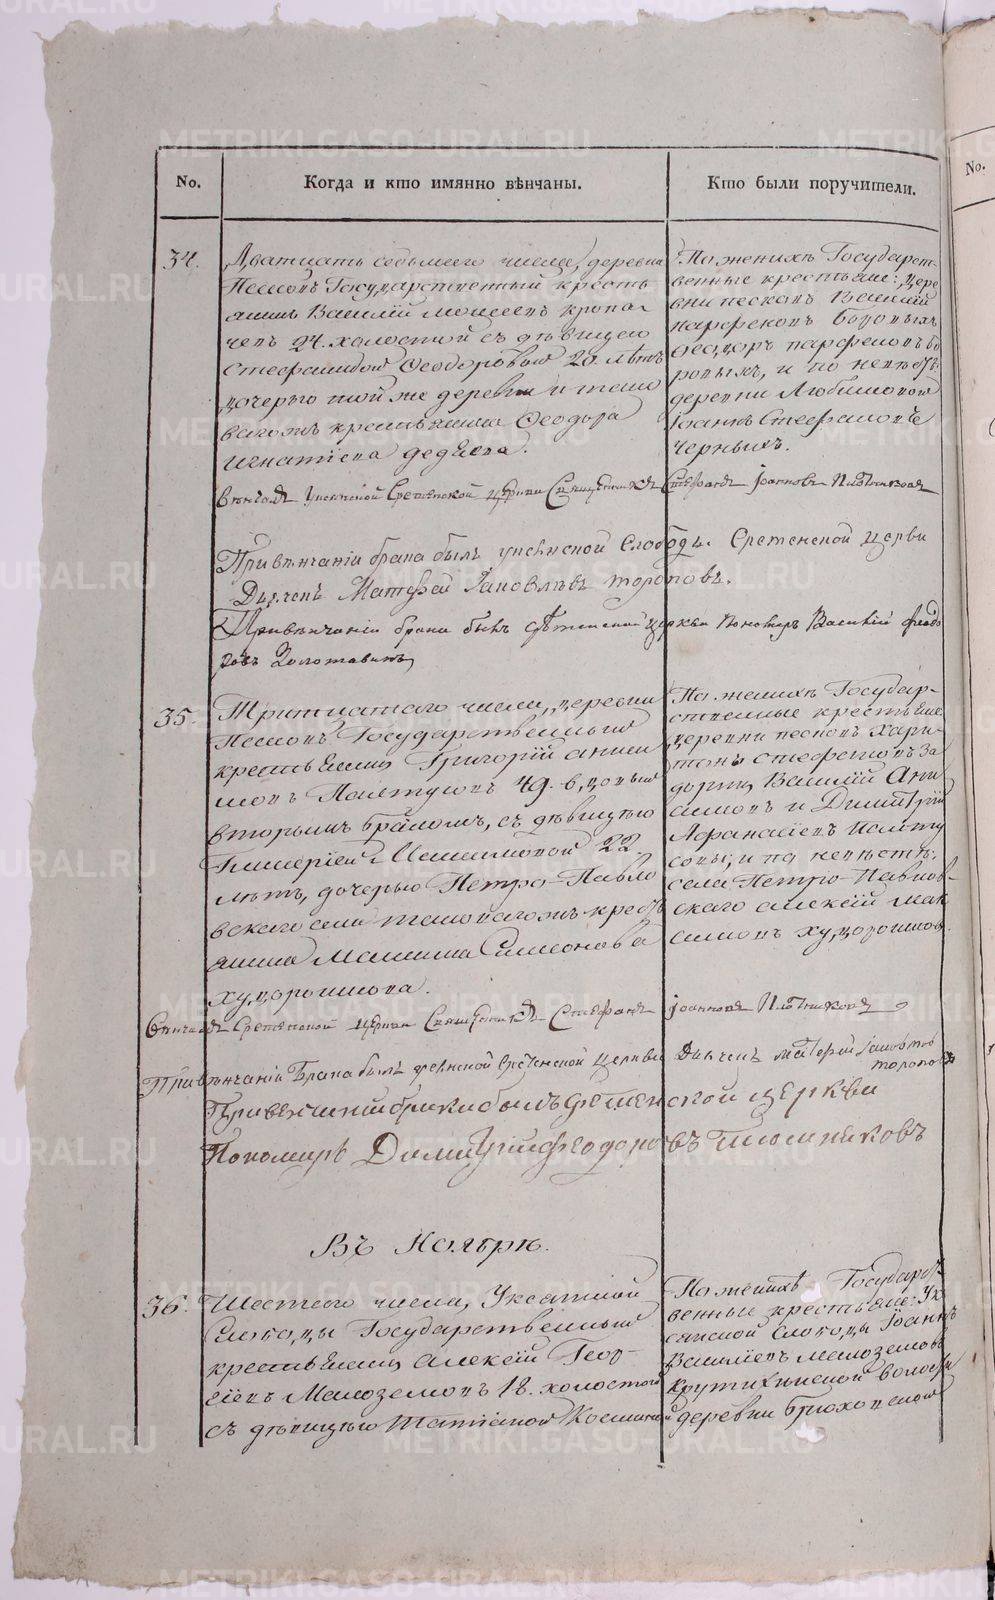 No.
Когда и кто имянно вѣнчаны.
Кто были поручители.
No.
34.
Дватцать седьмого числа, деревни
Песковъ Государственный кресть
янинъ Василій Моисеевъ кропа
чевъ 24. холостой съ дѣвицею
Стефанидою Феодоровою 20. лѣтъ
дочерью той же деревни и тако
вагожъ крестьянина Феодора
Игнатіева
По женихѣ Государст-
венные крестьяне: дере
вни песковъ Василій
парфеновъ Боровыхъ
Феодоръ парфеновъ Бо
ровыхъ, и по невѣстѣ:
деревни Любимовой
Іоаннъ Стефановъ
Черныхъ.
Вѣнчалъ Уксянской Срѣтенской церкви Священникъ Стефанъ Іоанновъ Плотниковъ
При вѣнчаніи брака былъ уксянской Слободы Сретенской церкви
Дьячекъ Матфей Іаковлевъ топорковъ.
При вѣнчаніи брака былъ срѣтенской церкви Пономарь Василій Феодо
ровъ Золотавинъ
35.
Тритцатаго числа, деревни
Песковъ Государственный
крестьянинъ Григорій аники
новъ 49. вдовый
вторымъ бракомъ, съ дѣвицею
Гликеріею 22.
лѣтъ, дочерью Петро-Павло
вскаго села таковагожъ кресть
янина Симеонова
худорошкова.
По женихѣ Государ-
ственные крестьяне
деревни песковъ хари
тонъ стефановъ За
Василій Ани
симовъ и Димитрій
Афанасіевъ
совы; и по невѣстѣ:
села Петро-Павлов-
скаго алексій мак
симовъ худорошков.
Вѣнчалъ Сретенской церкви Священникъ Стефанъ Іоанновъ Плотниковъ
При вѣнчаніи Брака былъ уксянской сретенской церкви Дьячекъ матфей Іаковлев
топорковъ
При венчаніи брака былъ сретенской церкви
Пономарь Димитрій феодоровъ Плотниковъ
Въ Ноябрѣ.
36.
Шестаго числа, Уксянской
Слободы Государственный
крестьянинъ Алексій Геор-
гіевъ Малоземовъ 18. холостой
съ дѣвицею Татіаною Косминой
По женихѣ Государст
венные крестьяне: Ук
сянской Слободы Іоаннъ
Василіевъ Малоземовъ
Крутихинской волости
деревни Брюховской